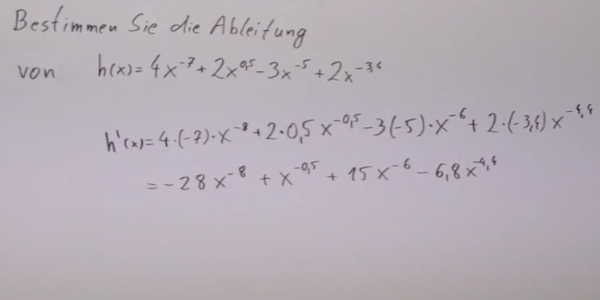 Bestimmen Sie die Ableitung
von h(x) = 4x⁻⁷ + 2x⁰,⁵ - 3x⁻⁵ + 2x⁻³,⁴
h'(x) = 4·(-7)·x⁻⁸ + 2·0,5x⁻⁰,⁵ - 3(-5)·x⁻⁶ + 2·(-3,4)x⁻⁴,⁴
= -28x⁻⁸ + x⁻⁰,⁵ + 15x⁻⁶ - 6,8x⁻⁴,⁴